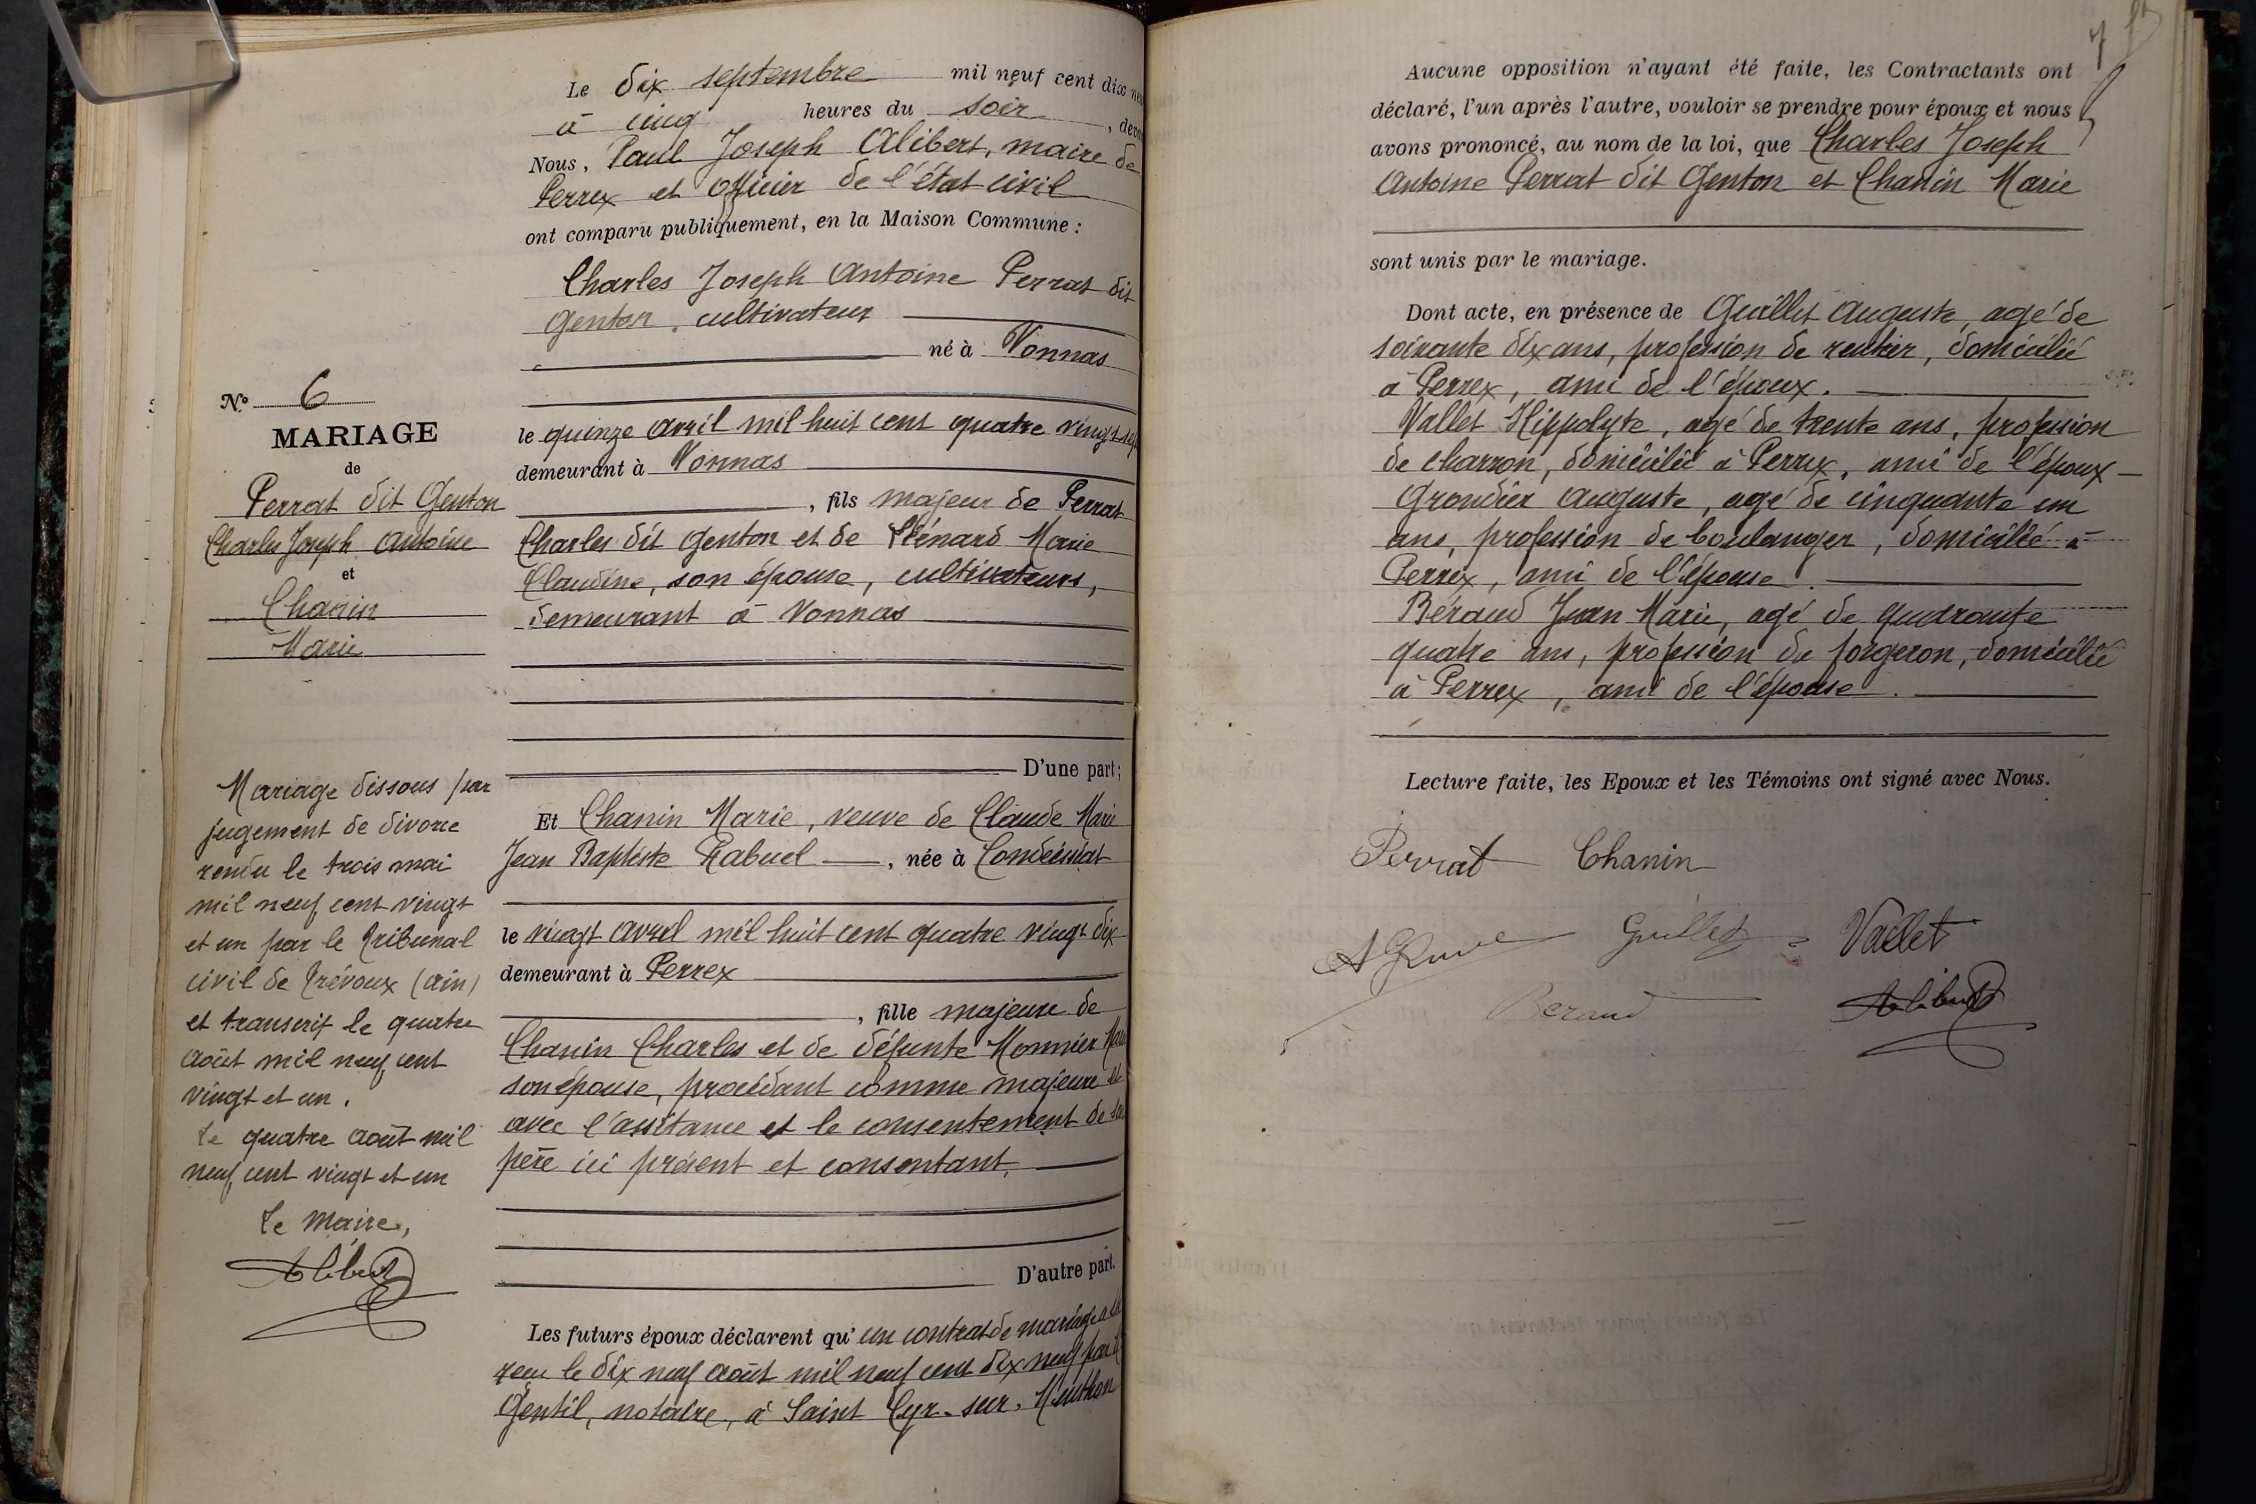 Le dix septembre mil neuf cent dix neu
à cinq heures du soir, deva
Nous, Paul Joseph Alibert, maire de
Perrex et officier de l'état civil
ont comparu publiquement, en la Maison Commune :
Charles Joseph Antoine Perrat dit
Genton, cultivateur
né à Vonnas
le quinze avril mil huit cent quatre vingt sept
demeurant à Vonnas
, fils majeur de Perrat
Charles dit Genton et de Marie
Claudine, son épouse, cultivateurs,
demeurant à Vonnas
D'une part ;
Et Chanin Marie, veuve de Claude Marie
Jean Baptiste Rabuel, née à Condeissiat
le vingt avril mil huit cent quatre vingt dix
demeurant à Perrex
, fille majeure de
Chanin Charles et de défunte Monnier Marie
son épouse, procédant comme majeure et
avec l'assitance et le consentement de son
père ici présent et consentant.
D'autre part.
Les futurs époux déclarent qu'un contrat de mariage a été
reçu le dix neuf août mil neuf cent dix neuf par
Gentil, notaire, à Saint Cyr-sur-Menthon
N° 6
MARIAGE
de
Perrat dit Genton
Charles Joseph Antoine
et
Chanin
Marie
Mariage dissous par
jugement de divorce
rendu le trois mai
mil neuf cent vingt
et un par le Tribunal
civil de Trévoux (Ain)
et transcrit le quatre
août mil neuf cent
vingt et un.
Le quatre août mil
neuf cent vingt et un
Le Maire,
Alibert
Aucune opposition n'ayant été faite, les Contractants ont
déclaré, l'un après l'autre, vouloir se prendre pour époux et nous
avons prononcé, au nom de la loi, que Charles Joseph
Antoine Perrat dit Genton et Chanin Marie
sont unis par le mariage.
Dont acte, en présence de Guillet Auguste, agé de
soixante dix ans, profession de rentier, domicilié
à Perrex, ami de l'époux.
Vallet Hippolyte, agé de trente ans, profession
de charron, domicilié à Perrex, ami de l'époux
Grondier Auguste, agé de cinquante un
ans, profession de boulanger, domicilié à
Perrex, ami de l'épouse.
Béraud Jean Marie, agé de quarante
quatre ans, profession de forgeron, domicilié
à Perrex, ami de l'épouse.
Lecture faite, les Epoux et les Témoins ont signé avec Nous.
Perrat Chanin
Guillet Vallet
Beraud Alibert